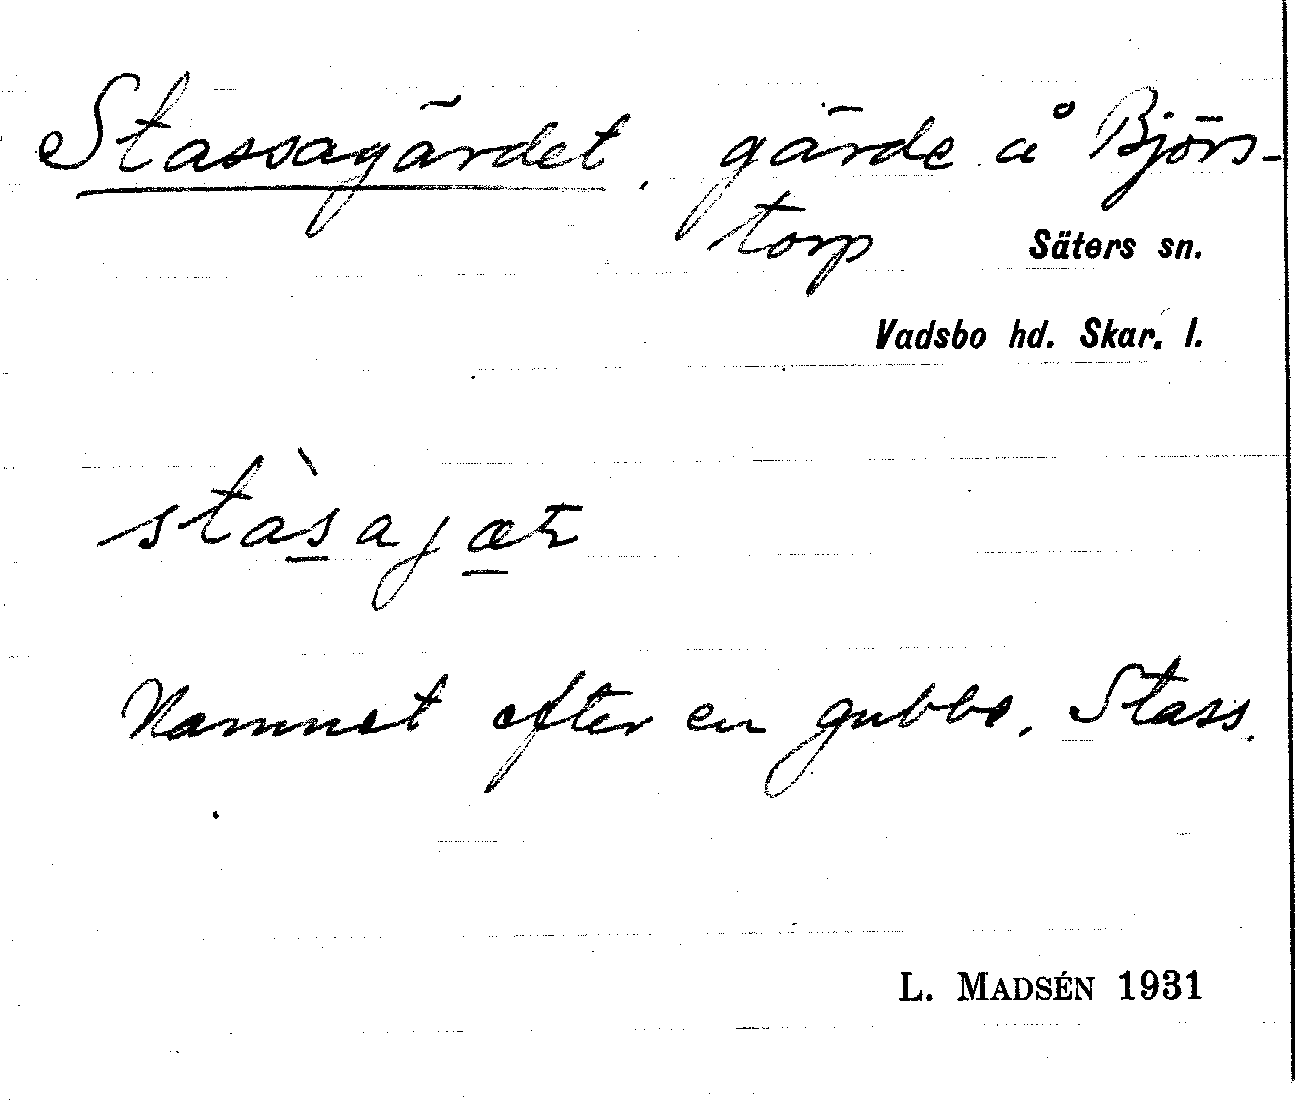 Stassagärdet, gärde å Björs-
torp
Säters sn.
Vadsbo hd. Skar. l.
Namnet efter en gubbe, Stass.
L. MADSÉN 1931